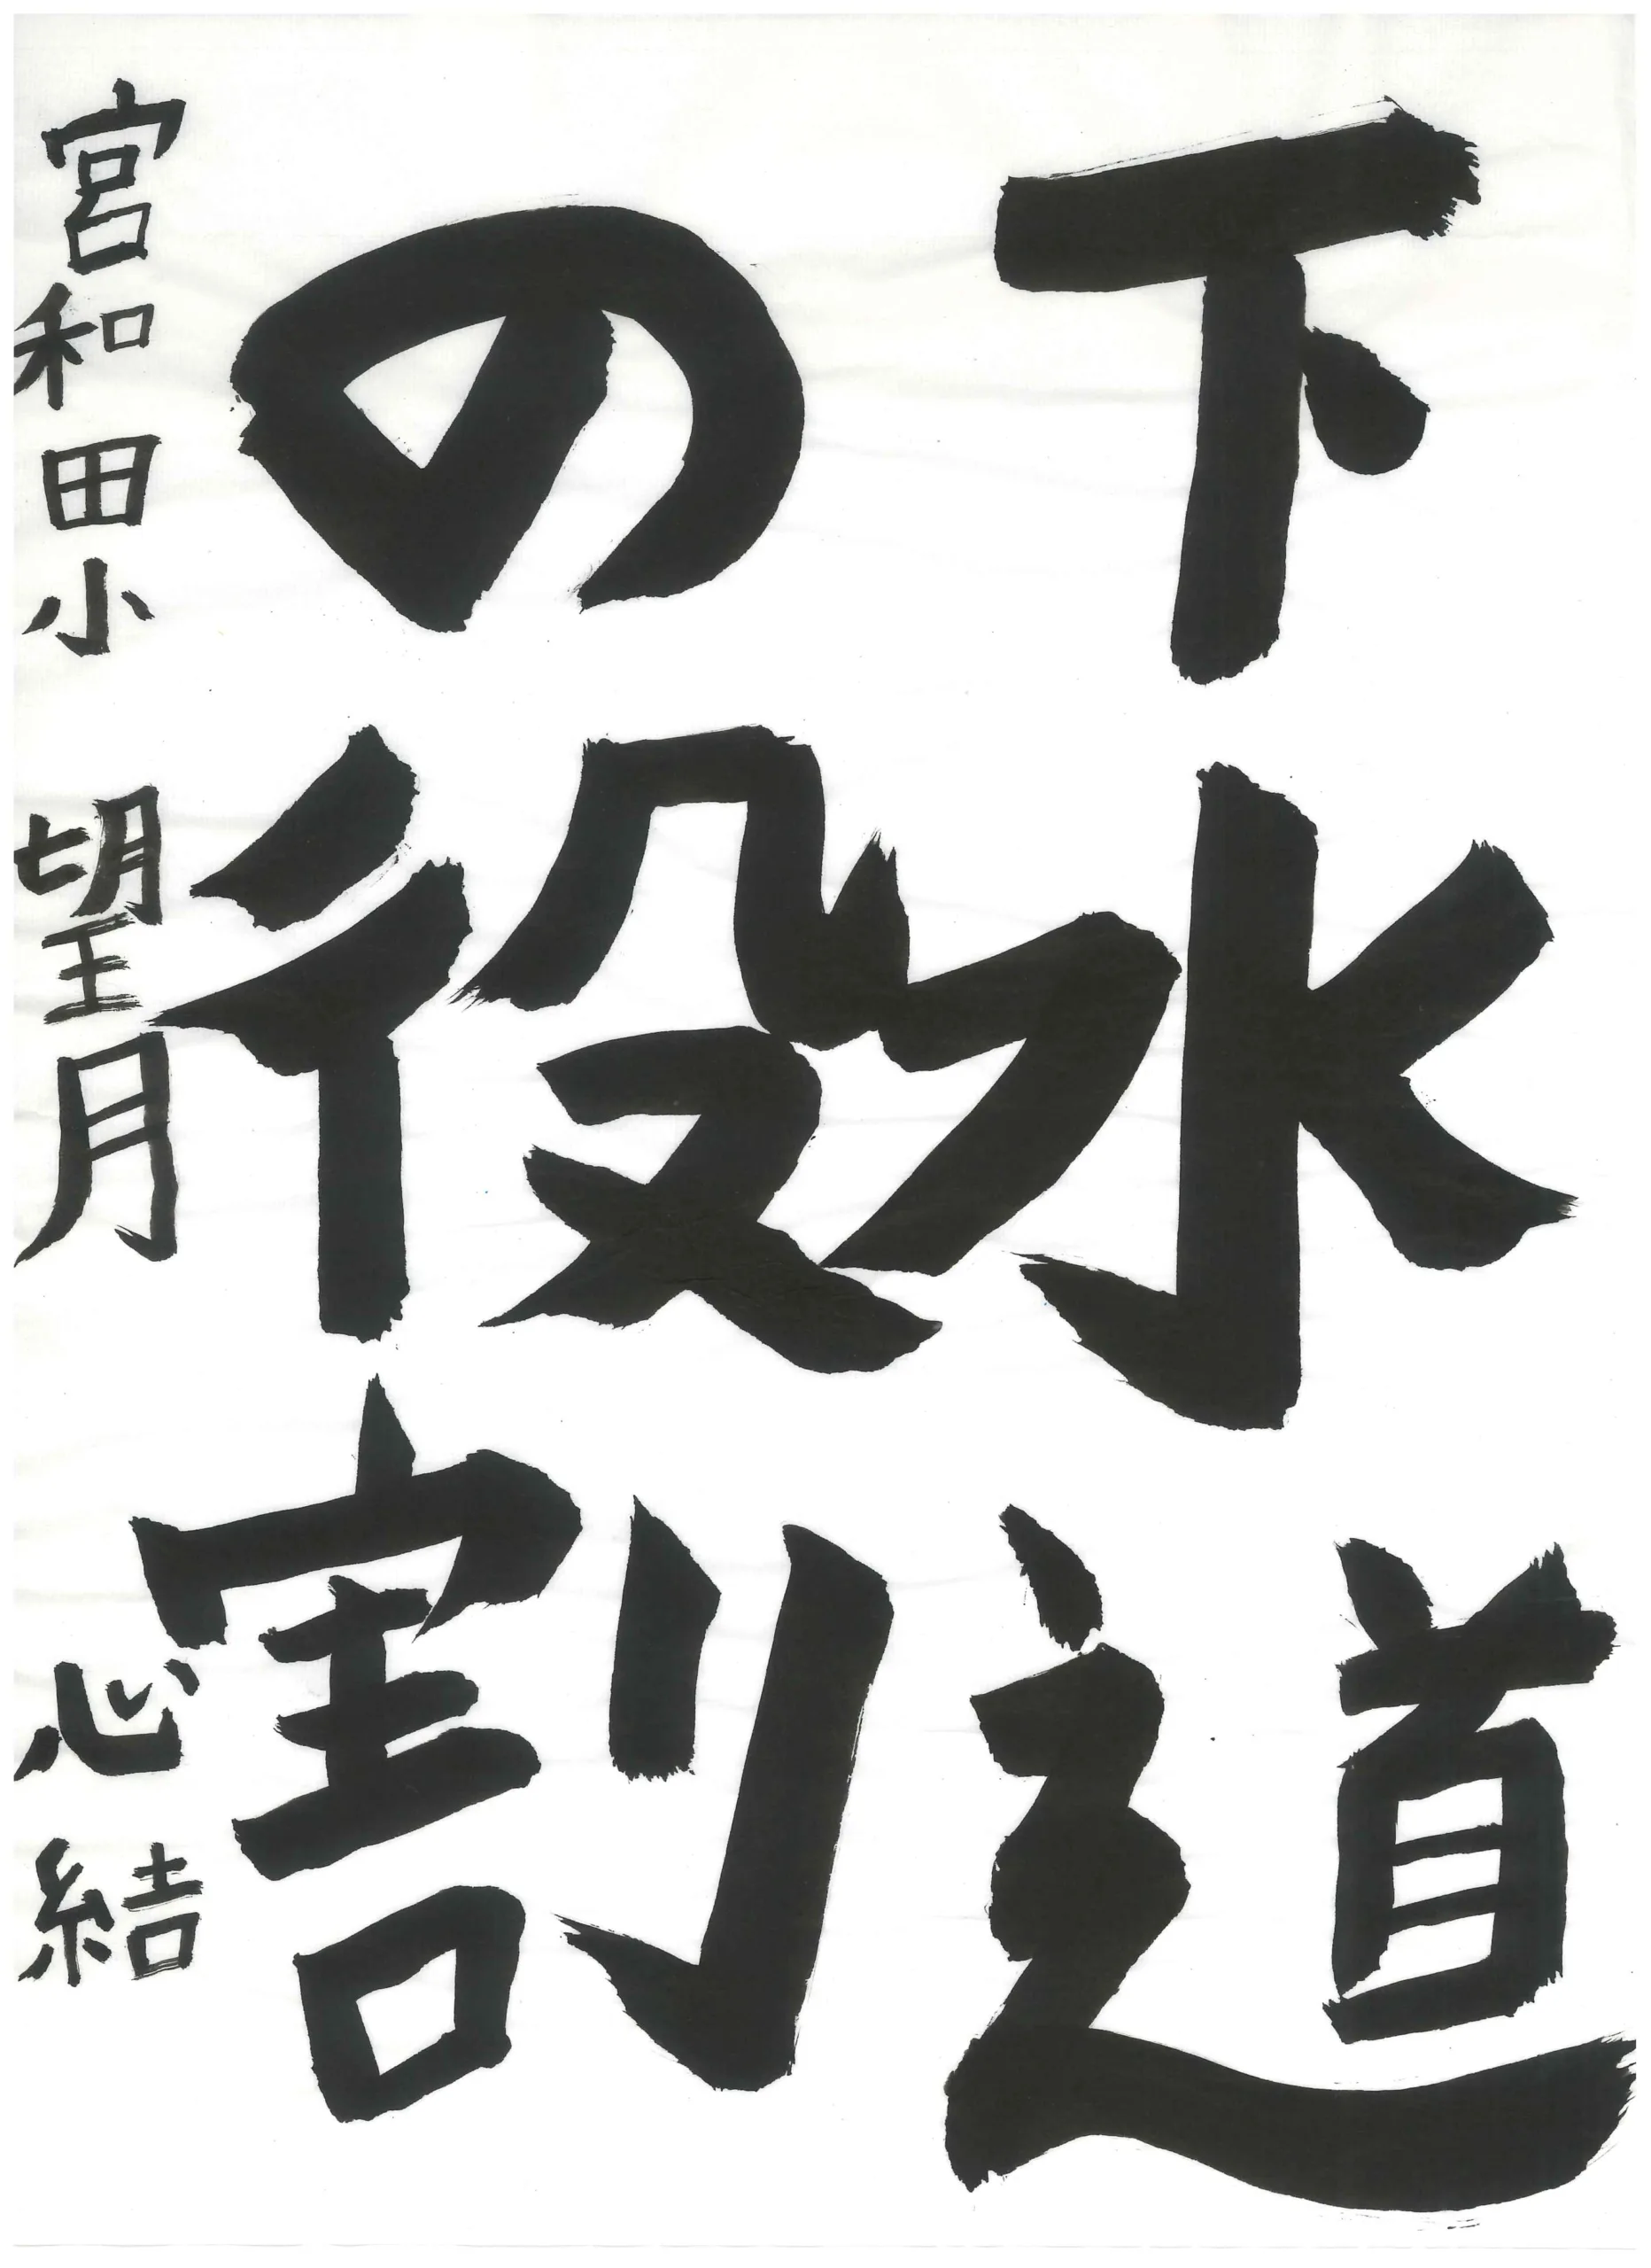 下水道
の役割
宮和田小 望月 心結